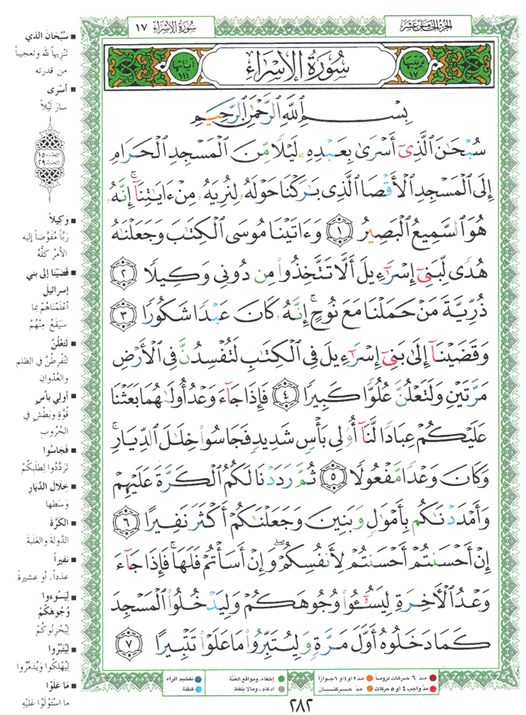 سُورَةُ الإِسْرَاء ١٧
الجزء الخامس عشر
ترتيبها ١٧
سُورَةُ الإِسْرَاءِ
آياتها ١١١
بِسْمِ اللَّهِ الرَّحْمَٰنِ الرَّحِيمِ
سُبْحَٰنَ الَّذِي أَسْرَىٰ بِعَبْدِهِ لَيْلًا مِّنَ الْمَسْجِدِ الْحَرَامِ
إِلَى الْمَسْجِدِ الْأَقْصَا الَّذِي بَٰرَكْنَا حَوْلَهُ لِنُرِيَهُ مِنْ ءَايَٰتِنَا إِنَّهُ
هُوَ السَّمِيعُ الْبَصِيرُ ١ وَءَاتَيْنَا مُوسَى الْكِتَٰبَ وَجَعَلْنَٰهُ
هُدًى لِّبَنِي إِسْرَٰءِيلَ أَلَّا تَتَّخِذُوا مِن دُونِي وَكِيلًا ٢
ذُرِّيَّةَ مَنْ حَمَلْنَا مَعَ نُوحٍ إِنَّهُ كَانَ عَبْدًا شَكُورًا ٣
وَقَضَيْنَا إِلَىٰ بَنِي إِسْرَٰءِيلَ فِي الْكِتَٰبِ لَتُفْسِدُنَّ فِي الْأَرْضِ
مَرَّتَيْنِ وَلَتَعْلُنَّ عُلُوًّا كَبِيرًا ٤ فَإِذَا جَاءَ وَعْدُ أُولَىٰهُمَا بَعَثْنَا
عَلَيْكُمْ عِبَادًا لَّنَا أُولِي بَأْسٍ شَدِيدٍ فَجَاسُوا خِلَٰلَ الدِّيَارِ
وَكَانَ وَعْدًا مَّفْعُولًا ٥ ثُمَّ رَدَدْنَا لَكُمُ الْكَرَّةَ عَلَيْهِمْ
وَأَمْدَدْنَٰكُم بِأَمْوَٰلٍ وَبَنِينَ وَجَعَلْنَٰكُمْ أَكْثَرَ نَفِيرًا ٦
إِنْ أَحْسَنتُمْ أَحْسَنتُمْ لِأَنفُسِكُمْ وَإِنْ أَسَأْتُمْ فَلَهَا فَإِذَا جَاءَ
وَعْدُ الْأَخِرَةِ لِيَسُـُٔوا وُجُوهَكُمْ وَلِيَدْخُلُوا الْمَسْجِدَ
كَمَا دَخَلُوهُ أَوَّلَ مَرَّةٍ وَلِيُتَبِّرُوا مَا عَلَوْا تَتْبِيرًا ٧
سُبْحَانَ الذي
تنزيهاً لله وتعجيباً
من قدرته
أسْرَى
سارَ لَيْلاً
وَكيلاً
ربّاً مُفَوَّضاً إليه
الأمْرُ كلُّه
قَضَيْنا إلى بني
إسرائيل
أعْلَمْناهُمْ بما
سيَقَعُ مِنْهُمْ
لَتَعْلُنَّ
لتُفْرِطُنَّ في الظلم
والعُدْوان
أولي بَأس
قُوَّةٍ وبَطْشٍ في
الحُروب
فَجَاسُوا
تَرَدَّدُوا لِطَلَبِكُمْ
خِلالَ الدِّيَارِ
وَسَطَها
الكَرَّةَ
الدَّوْلَة والغَلَبَةَ
نَفيراً
عدداً، أو عشيرةً
لِيَسُوءُوا
وُجُوهَكُمْ
ليُحْزِنُوكُمْ
لِيُتَبِّرُوا
لِيُهْلِكوا ويُدمِّروا
مَا عَلَوْا
ما استَوْلَوْا عَلَيْهِ
مدّ ٦ حركات لزوماً
مدّ ٢ أو ٤ أو ٦ جوازاً
إخفاء، ومواقع الغنّة
تفخيم الراء
مدّ واجب ٤ أو ٥ حركات
مدّ حركتان
إدغام، وما لا يلفظ
قلقلة
٢٨٢